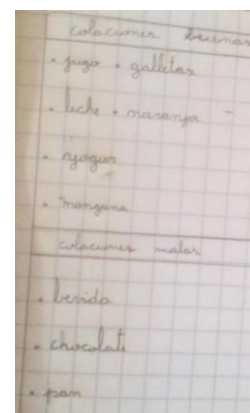 colaciones buenas
• jugo + galletas
• leche + naranja -
• yogur
• manzana
colaciones malas
• bebida
• chocolate
• pan